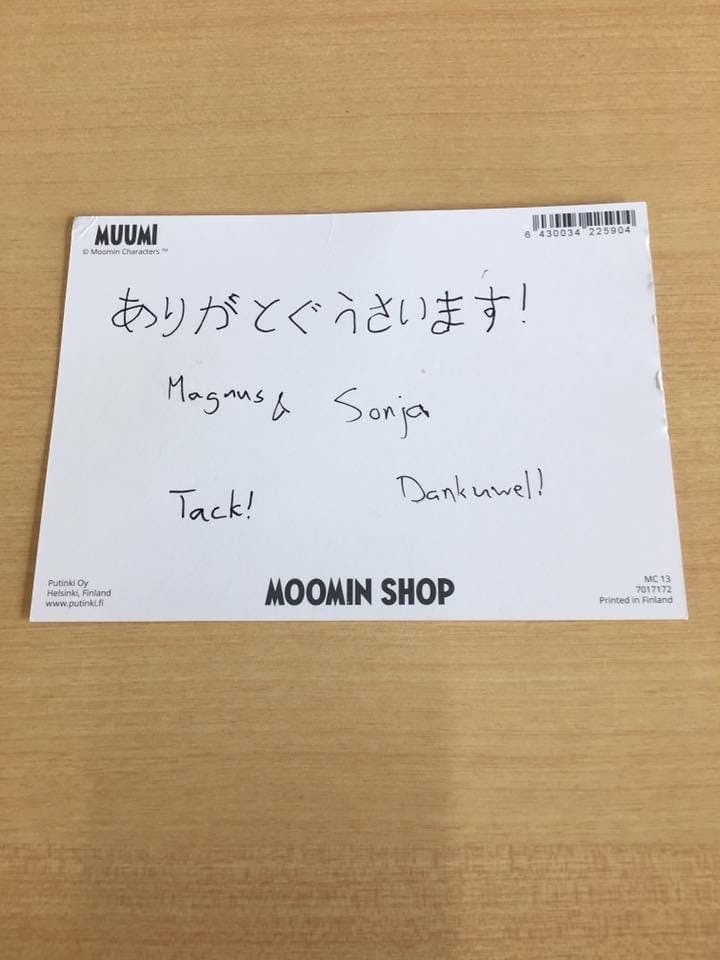 MUUMI
© Moomin Characters ™
6 430034 225904
ありがとぐうさいます!
Magnus & Sonja
Tack!
Dankuwel!
Putinki Oy
Helsinki, Finland
www.putinki.fi
MOOMIN SHOP
MC 13
7017172
Printed in Finland